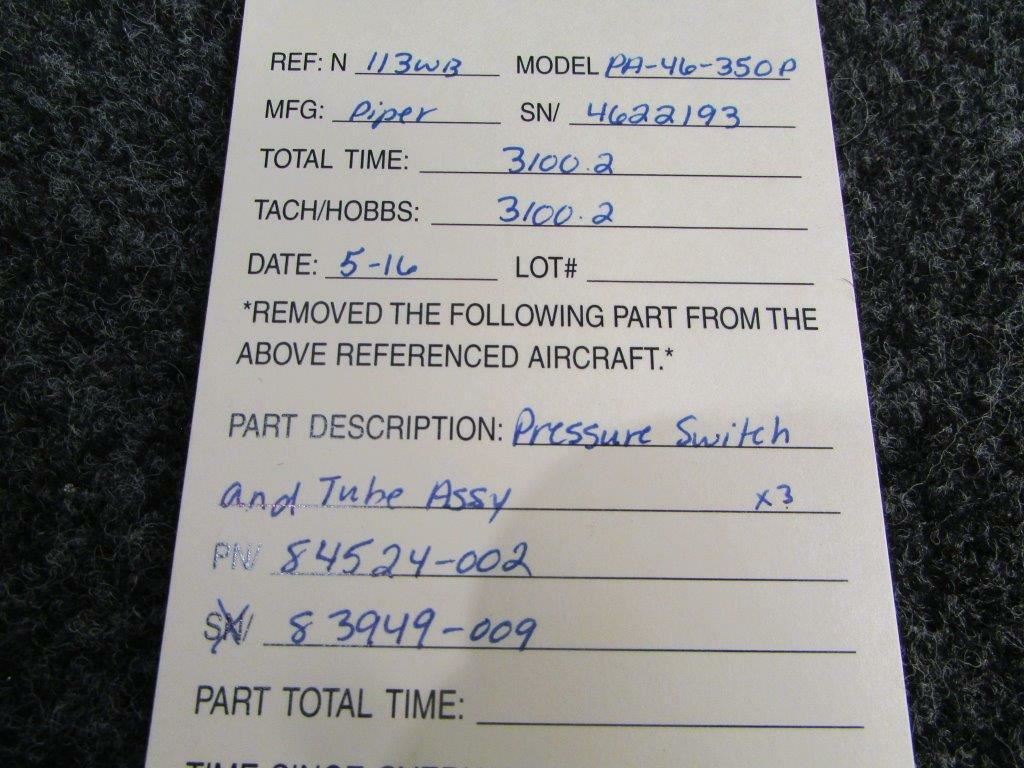 REF: N 113WB MODEL PA-46-350P
MFG: Piper SN/ 4622193
TOTAL TIME: 3100.2
TACH/HOBBS: 3100.2
DATE: 5-16 LOT#
*REMOVED THE FOLLOWING PART FROM THE
ABOVE REFERENCED AIRCRAFT.*
PART DESCRIPTION: Pressure Switch
and Tube Assy x3
PN/ 84524-002
SN/ 83949-009
PART TOTAL TIME: